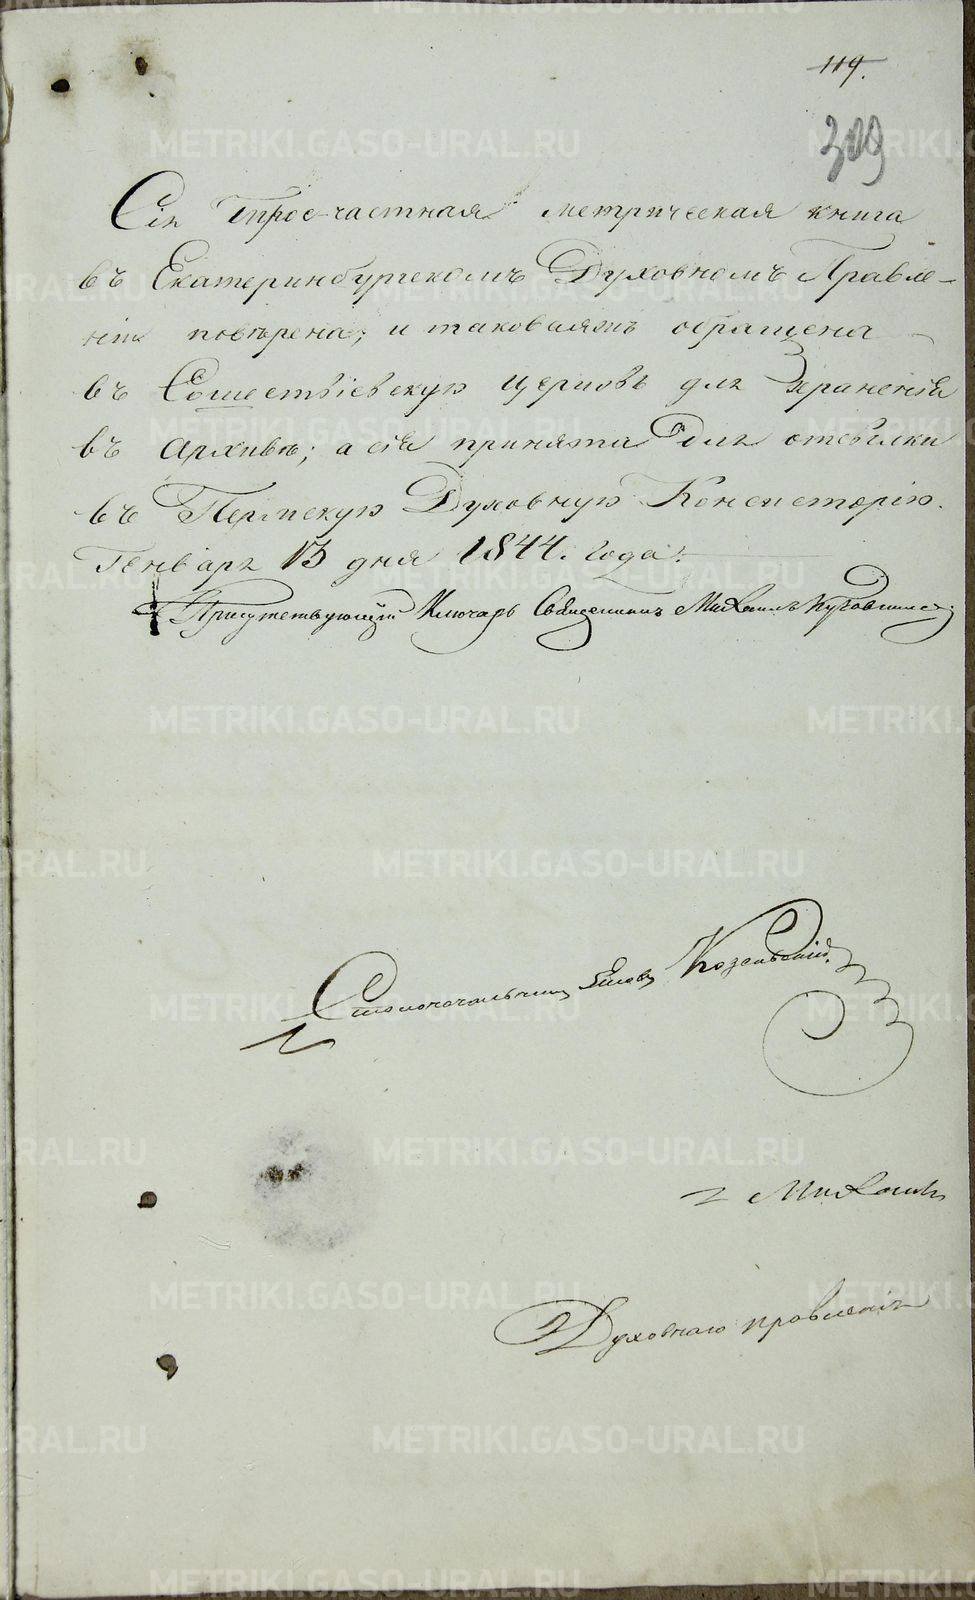 119.
309
Сія трое-частная метрическая книга
въ Екатеринбургскомъ Духовномъ Правле-
ніи повѣрена; и таковаяжъ обращена
въ Сошествіевскую церковь для храненія
въ Архивѣ; а сія принята для отсылки
въ Пермскую Духовную Консисторію.
Генваря 13 дня 1844. года.
Присутствующій Ключарь Священникъ Михаилъ
Столоначальникъ Козельскій.
Духовнаго правленія
METRIKI.GASO-URAL.RU